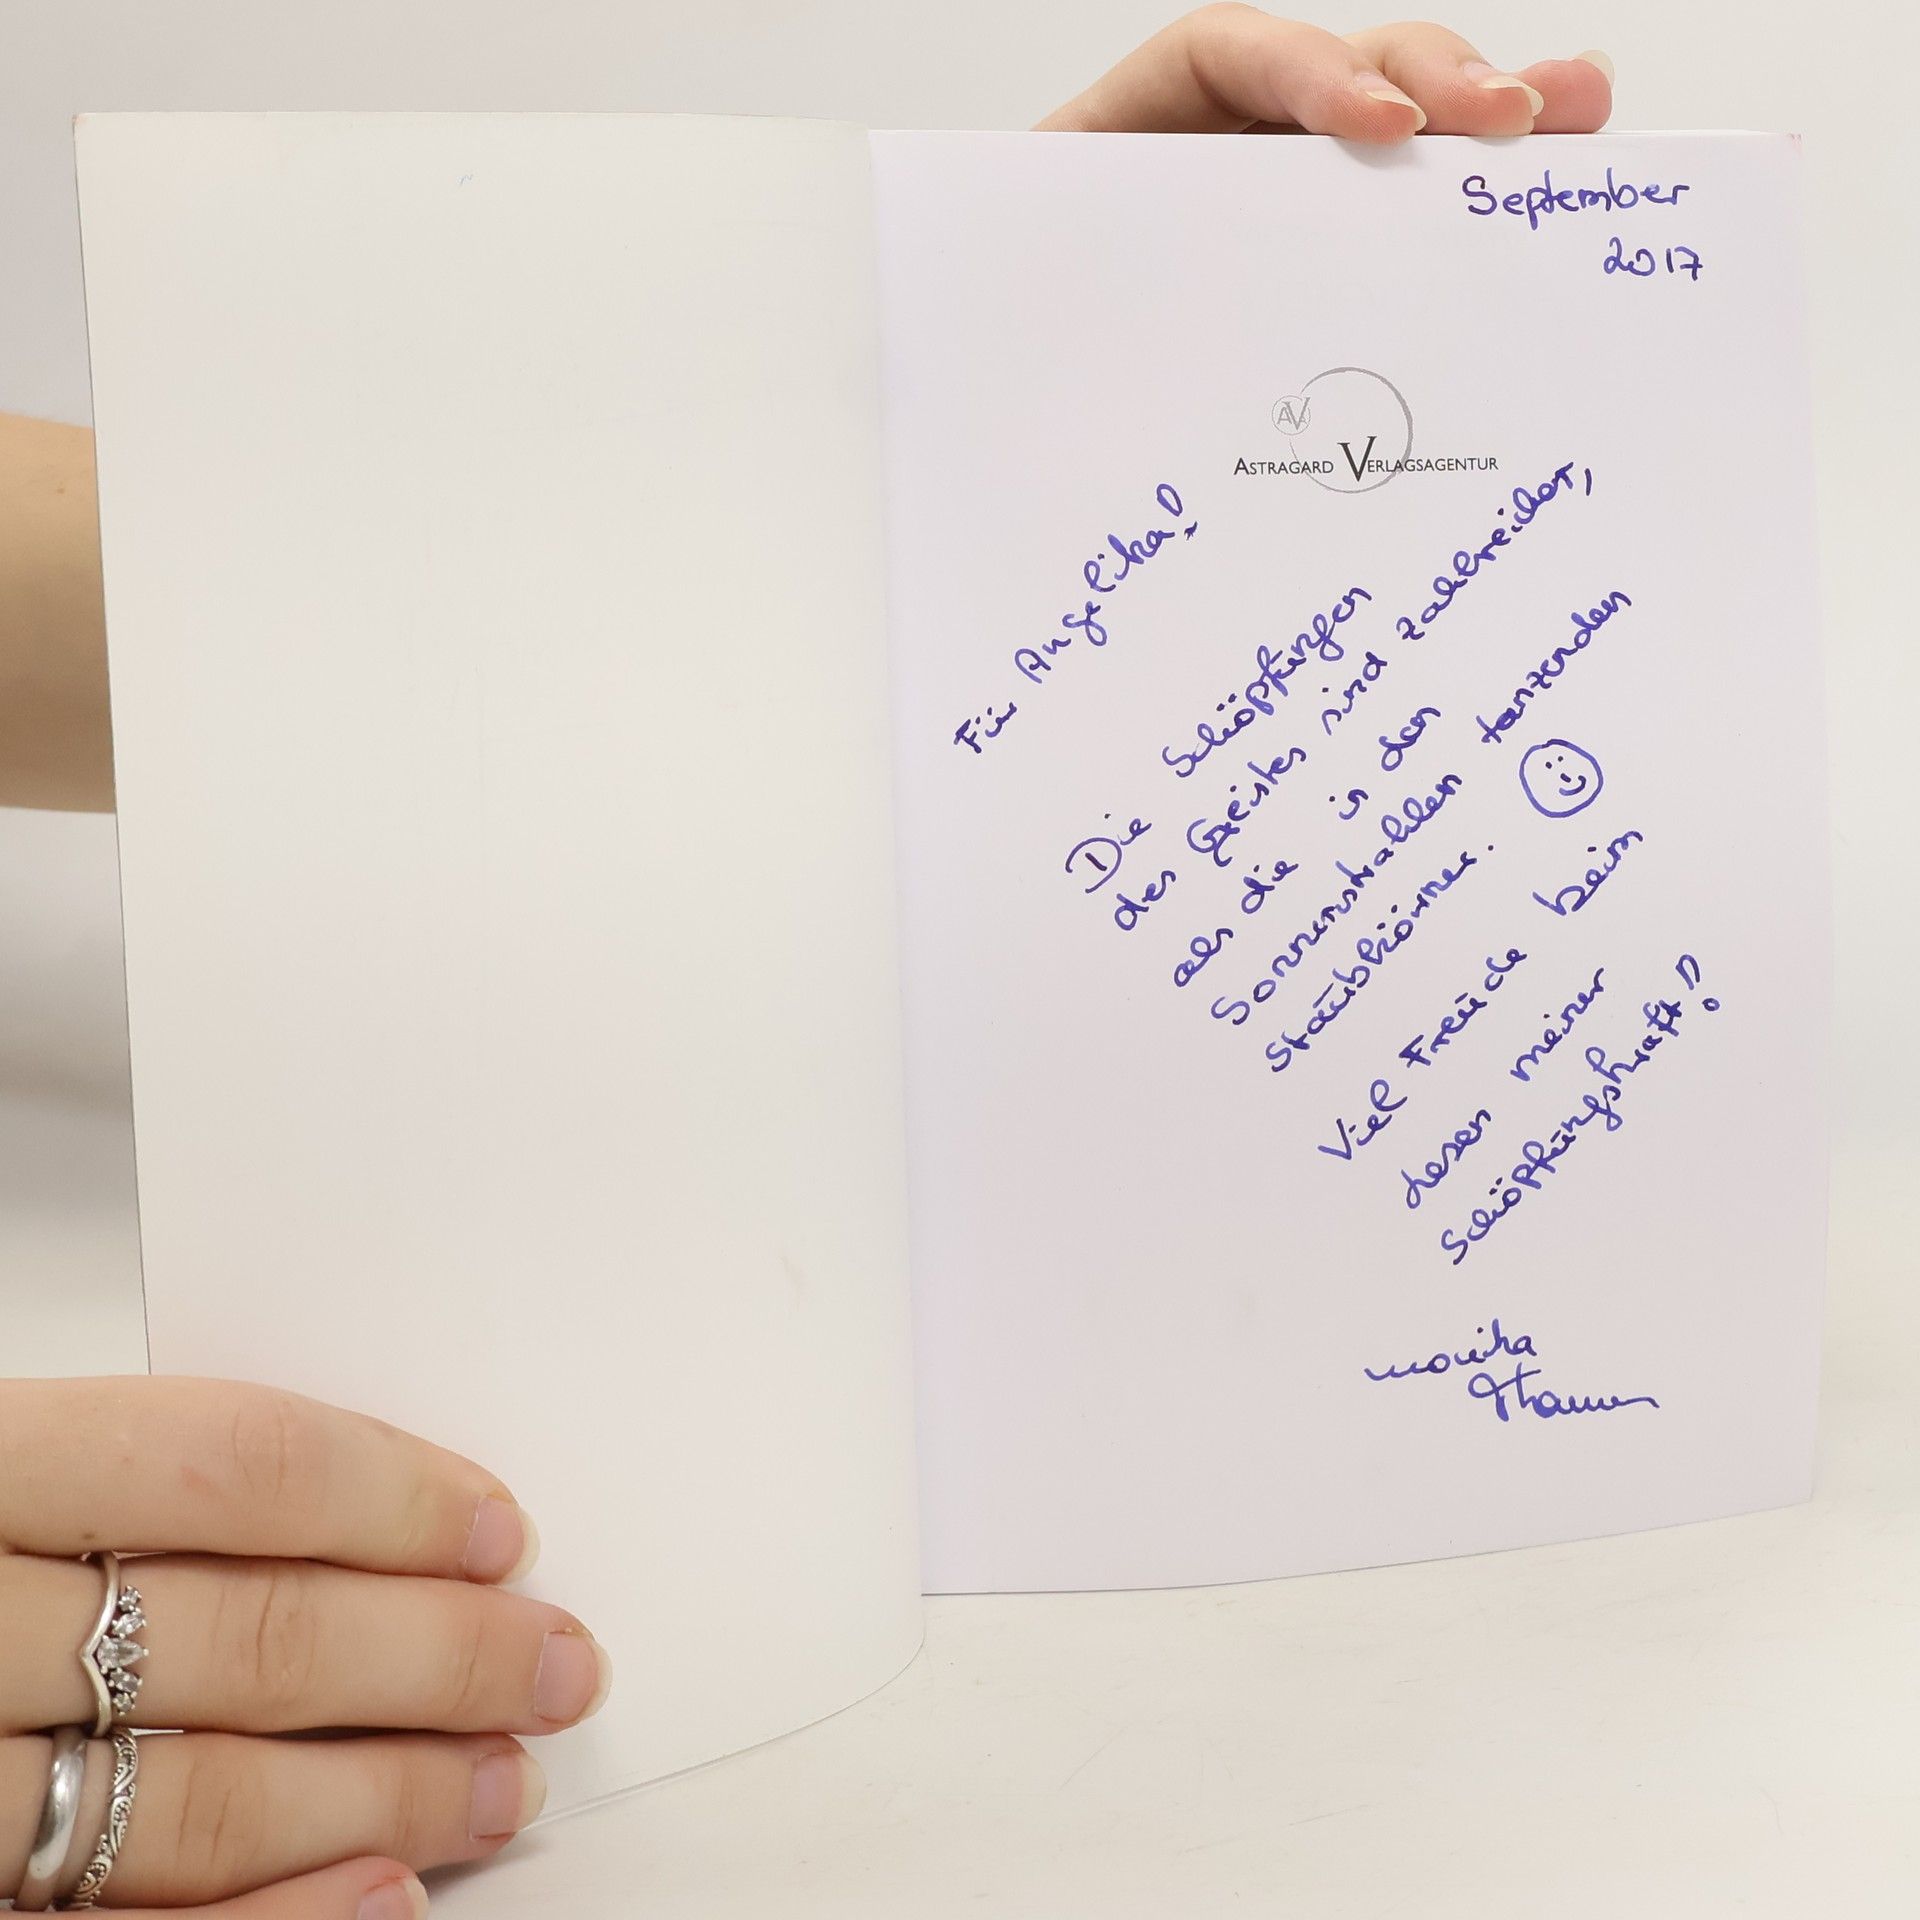 September
2017
AVA
ASTRAGARD VERLAGSAGENTUR
Für Angelika!
Die Schöpfungen
des Geistes sind zahlreicher,
als die in den
Sonnenstrahlen tanzenden
Staubkörner.
Viel Freude beim
Lesen meiner
Schöpfungskraft!
Monika